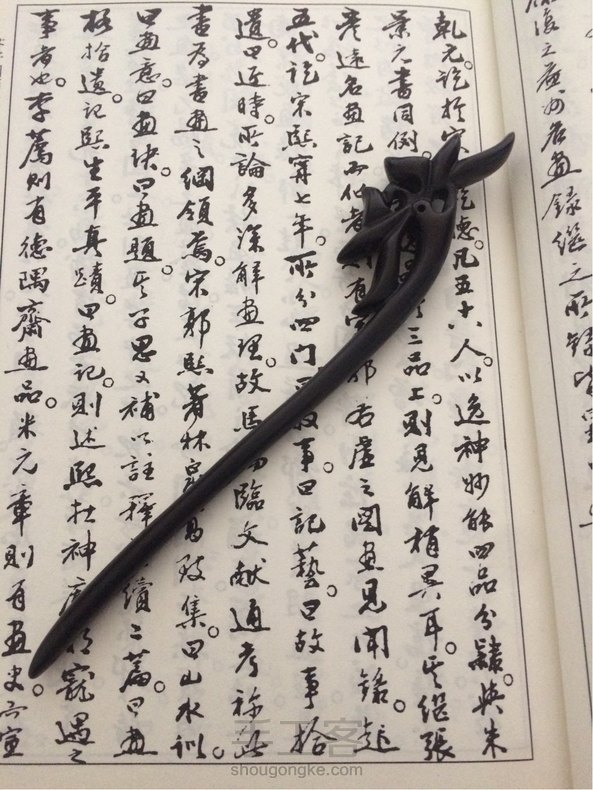 復之益州名畫錄繼之所錄皆
乾元。訖於宋 德。凡五十八人以逸神妙能四品分隸。與朱
景元書同例。 三品上。則見解稍異耳。其繼張
彥遠名畫記而作者 有宋郭若虛之圖畫見聞錄。起
五代訖宋熙寧七年。所分四門 敘事。曰記藝。曰故事拾
遺。曰近時。所論多深解畫理。故馬端臨文獻通考稱此
書為書畫之綱領焉。宋郭熙著林泉高致集。曰山水訓。
曰畫意。曰畫訣。曰畫題。其子思又補以註釋 續二篇。曰畫
格拾遺。記熙生平真蹟。曰畫記。則述熙在神宗時寵遇之
事者也。李廌則有德隅齋畫品。米元章則有畫史。而宣
手工客
shougongke.com